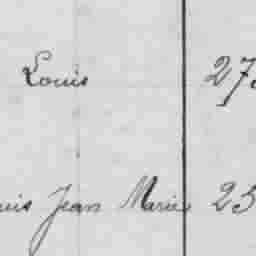 Louis 27
Jean Marie 25